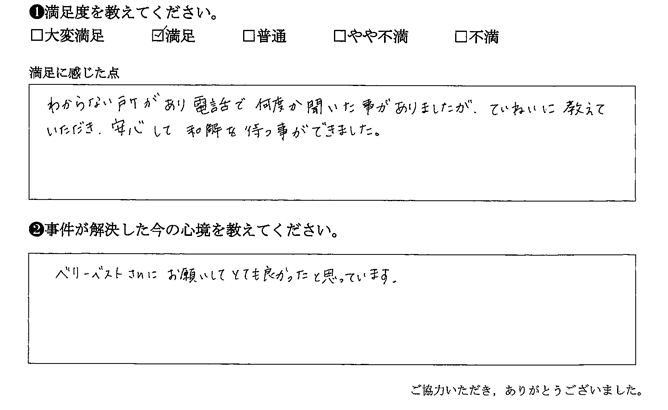 ❶満足度を教えてください。
□大変満足 ☑満足 □普通 □やや不満 □不満
満足に感じた点
わからない所があり電話で何度か聞いた事がありましたが、ていねいに教えて
いただき、安心して和解を待つ事ができました。
❷事件が解決した今の心境を教えてください。
ベリーベストさんにお願いしてとても良かったと思っています。
ご協力いただき，ありがとうございました。